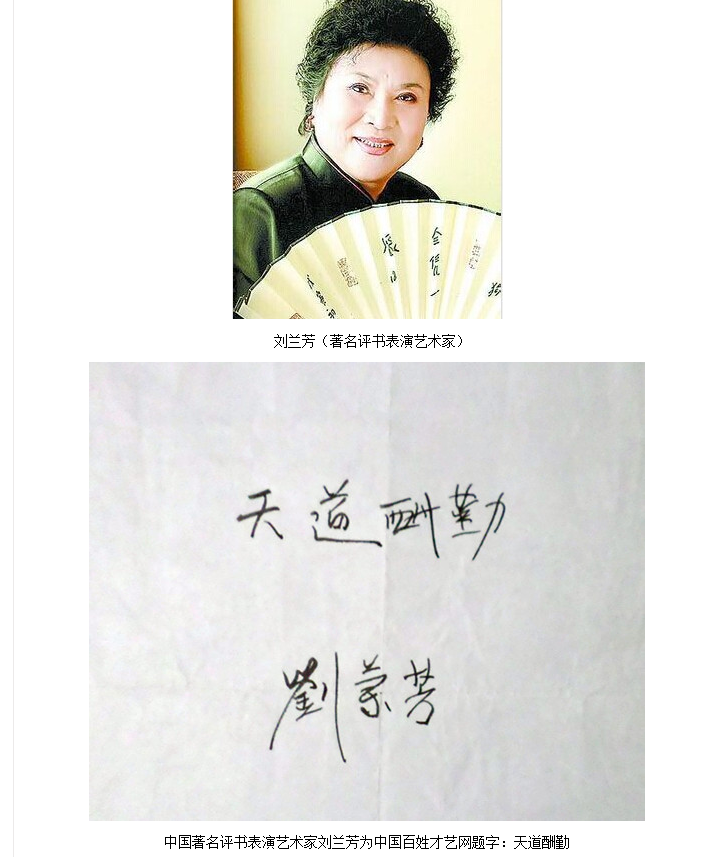 刘兰芳（著名评书表演艺术家）
天道酬勤
劉兰芳
中国著名评书表演艺术家刘兰芳为中国百姓才艺网题字：天道酬勤